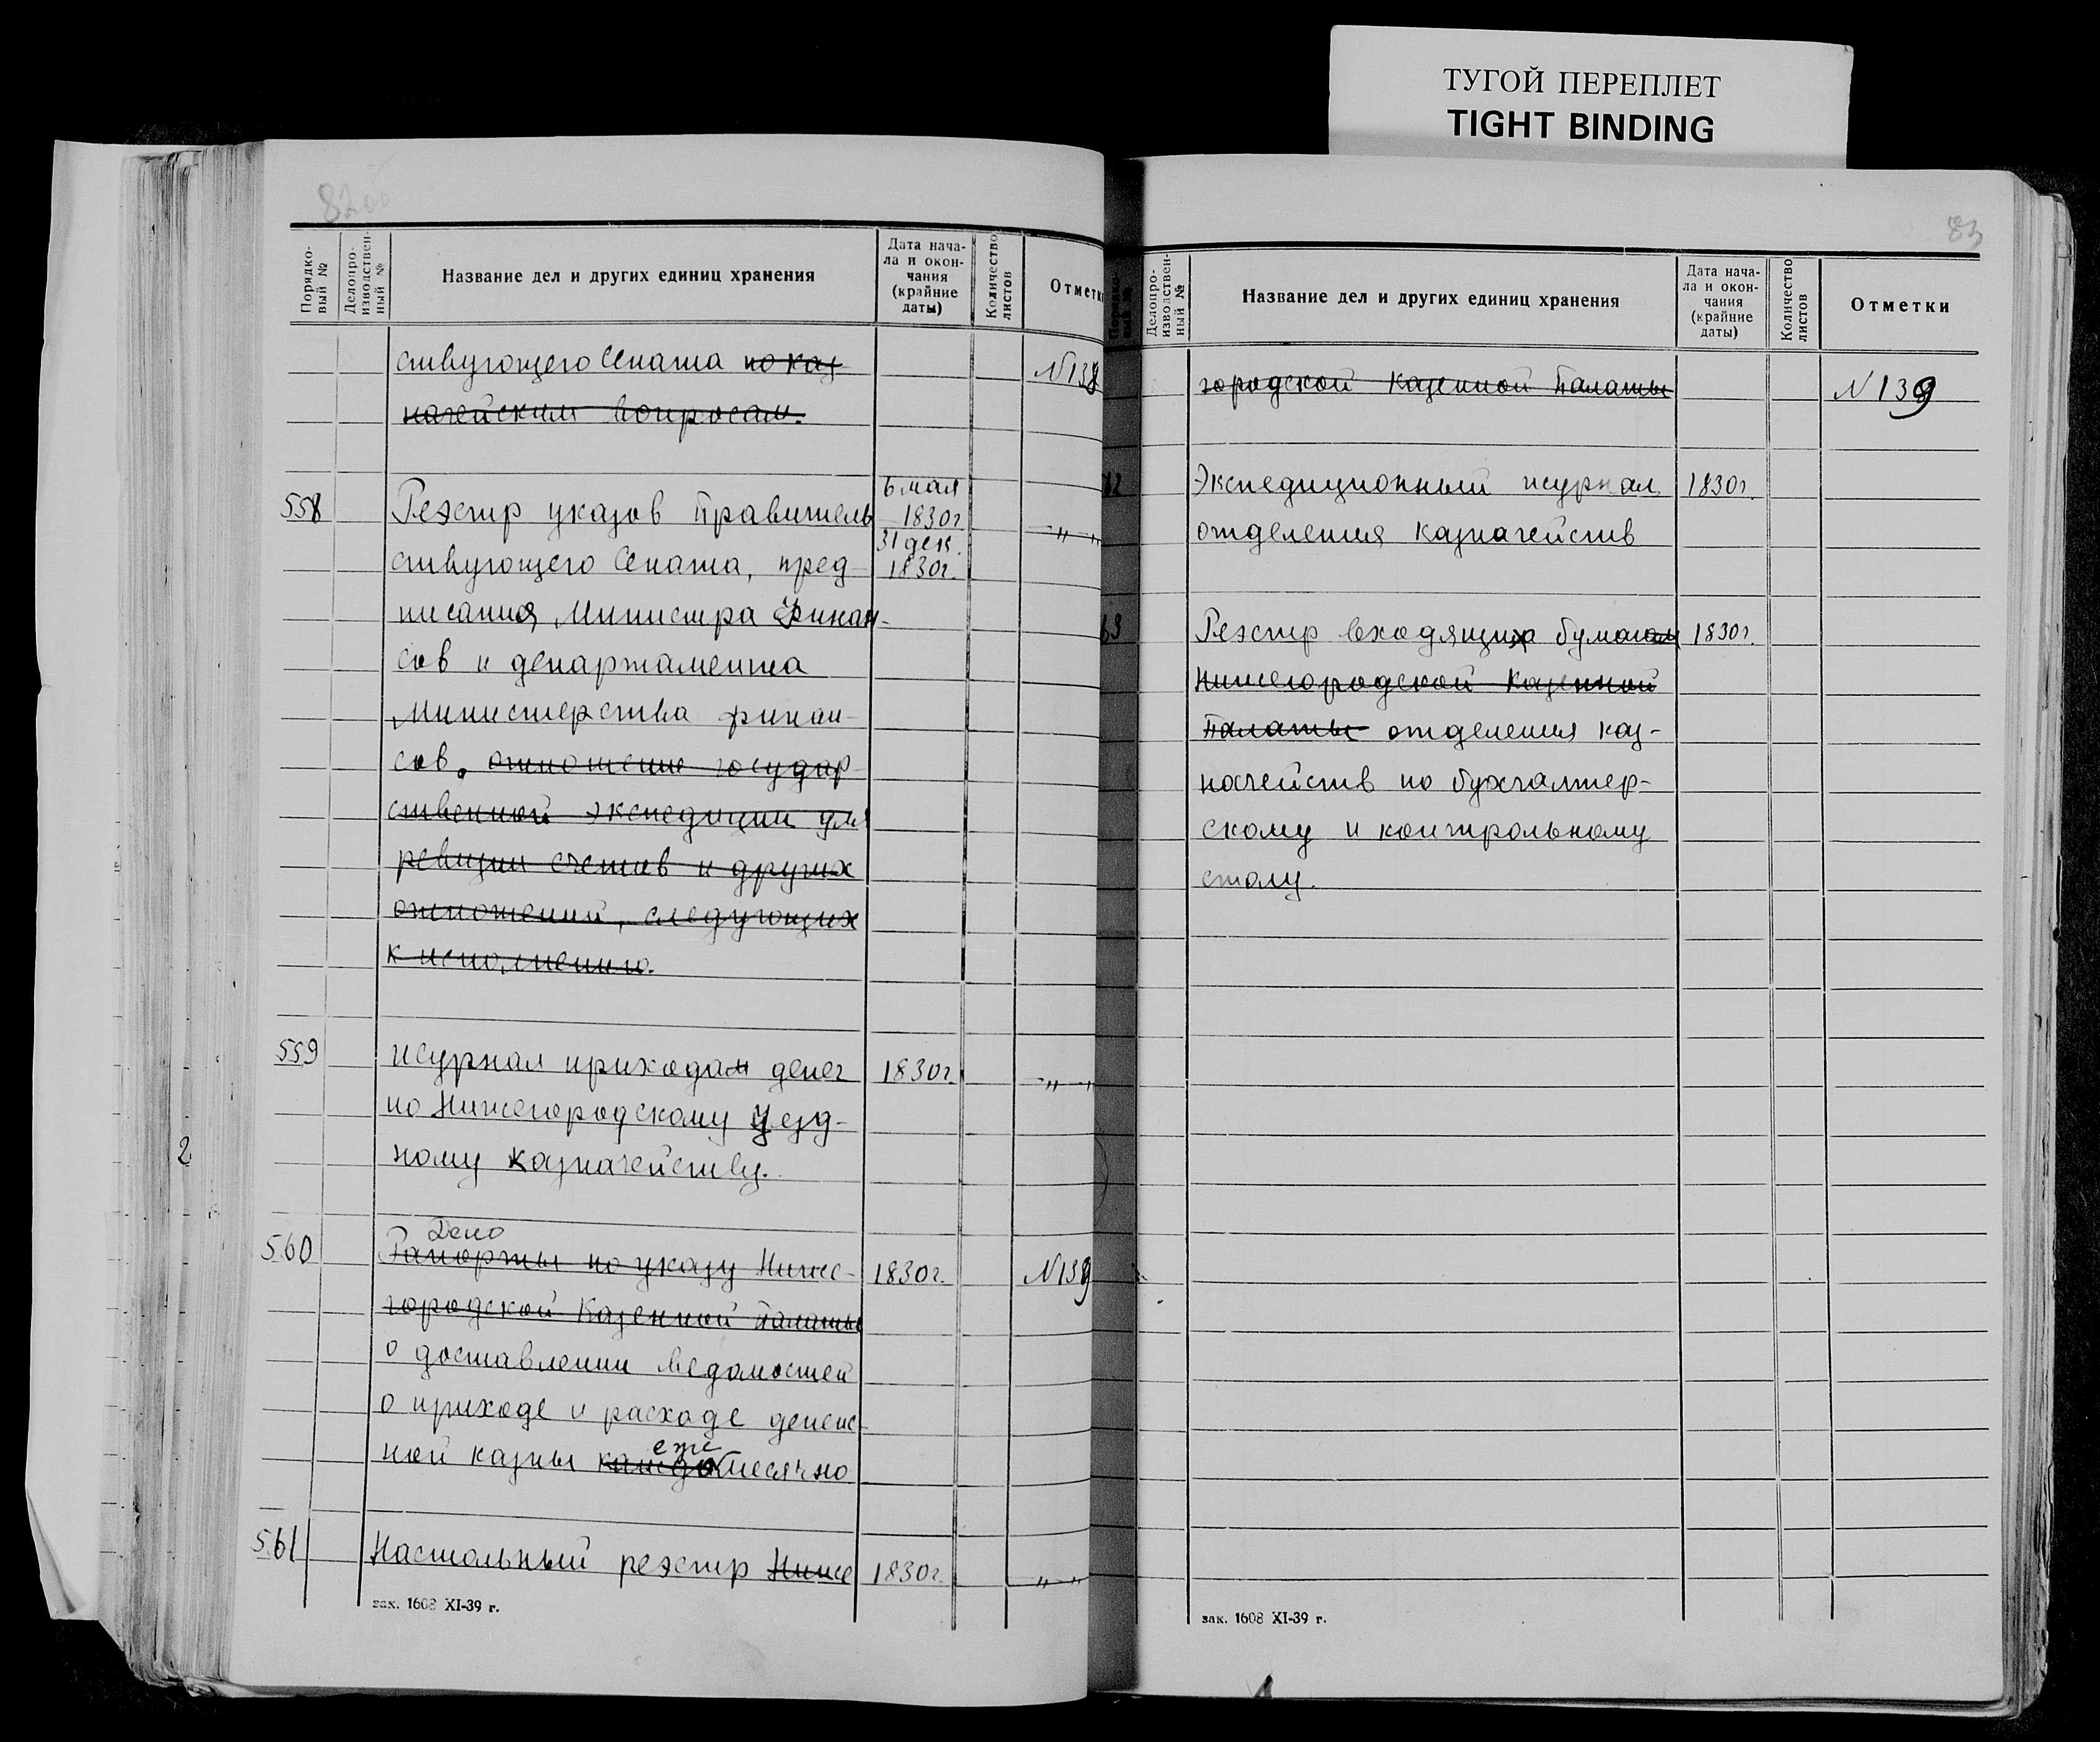 ТУГОЙ ПЕРЕПЛЕТ
TIGHT BINDING
82об
Порядко-
вый №
Делопро-
изводствен-
ный №
Название дел и других единиц хранения
Дата нача-
ла и окон-
чания
(крайние
даты)
Количество
листов
Отметк
ствующего Сената по каз
начейским вопросам.
№138
558
Реэстр указов Правитель
ствующего Сената, пред-
писания Министра Финан-
сов и департамента
Министерства финан-
сов, отношение государ-
ственной экспедиции для
ревизии счетов и других
отношений, следующих
к исполнению.
6 мая
1830г
31 дек.
1830г.
-"-
559
журнал приходам денег
по Нижегородскому уезд-
ному казначейству.
1830г.
-"-
560
Дело
Рапорты по указу Ниже-
городской Казенной Палаты
о доставлении ведомостей
о приходе и расходе денеж-
ной казны каждо еже месячно
1830г.
№139
561
Настольный реэстр Ниже
1830г.
-"-
зак. 1608 XI-39 г.
2
83
Делопро-
изводствен-
ный №
Название дел и других единиц хранения
Дата нача-
ла и окон-
чания
(крайние
даты)
Количество
листов
Отметки
городской Казенной Палаты
№139
62
Экспедиционный журнал
отделения казначейств
1830г.
63
Реэстр входящих бумагам
Нижегородской Казенной
Палаты отделения каз-
начейств по бухгалтер-
скому и контрольному
столу.
1830г.
зак. 1608 XI-39 г.